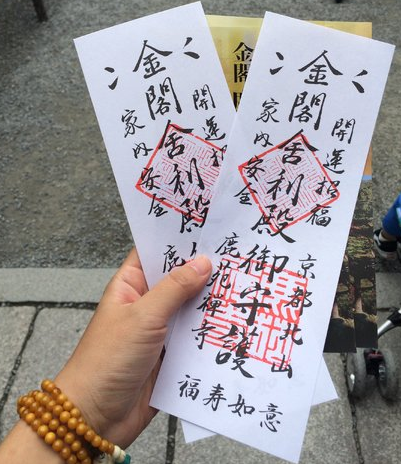 開運招
金閣舎利殿
家内安全
鹿
金閣
開運招福
京都北山
金閣舎利殿御守護
家内安全
鹿苑禅寺
福寿如意